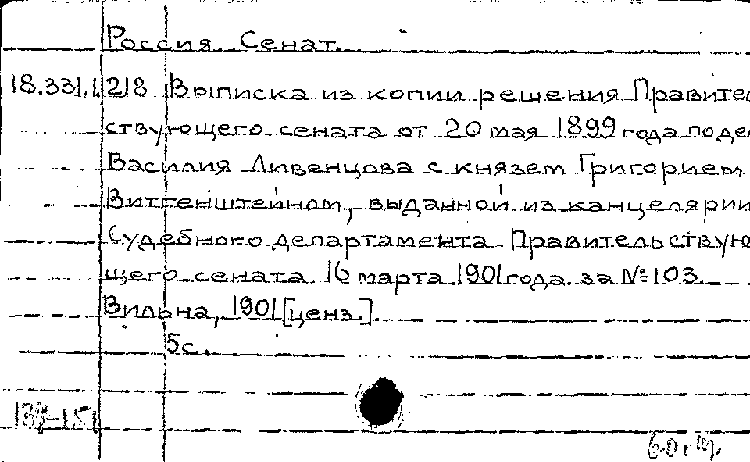 Россия. Сенат.
18.331.1.218 Выписка из копии решения Правитель
ствующего сената от 20 мая 1899 года по делу
Василия Ливенцова с князем Григорием
Витгенштейном, выданной из канцелярии
Судебного департамента Правительствую
щего сената 16 марта 1901 года за № 103.
Вильна, 1901 [ценз.].
5 с.